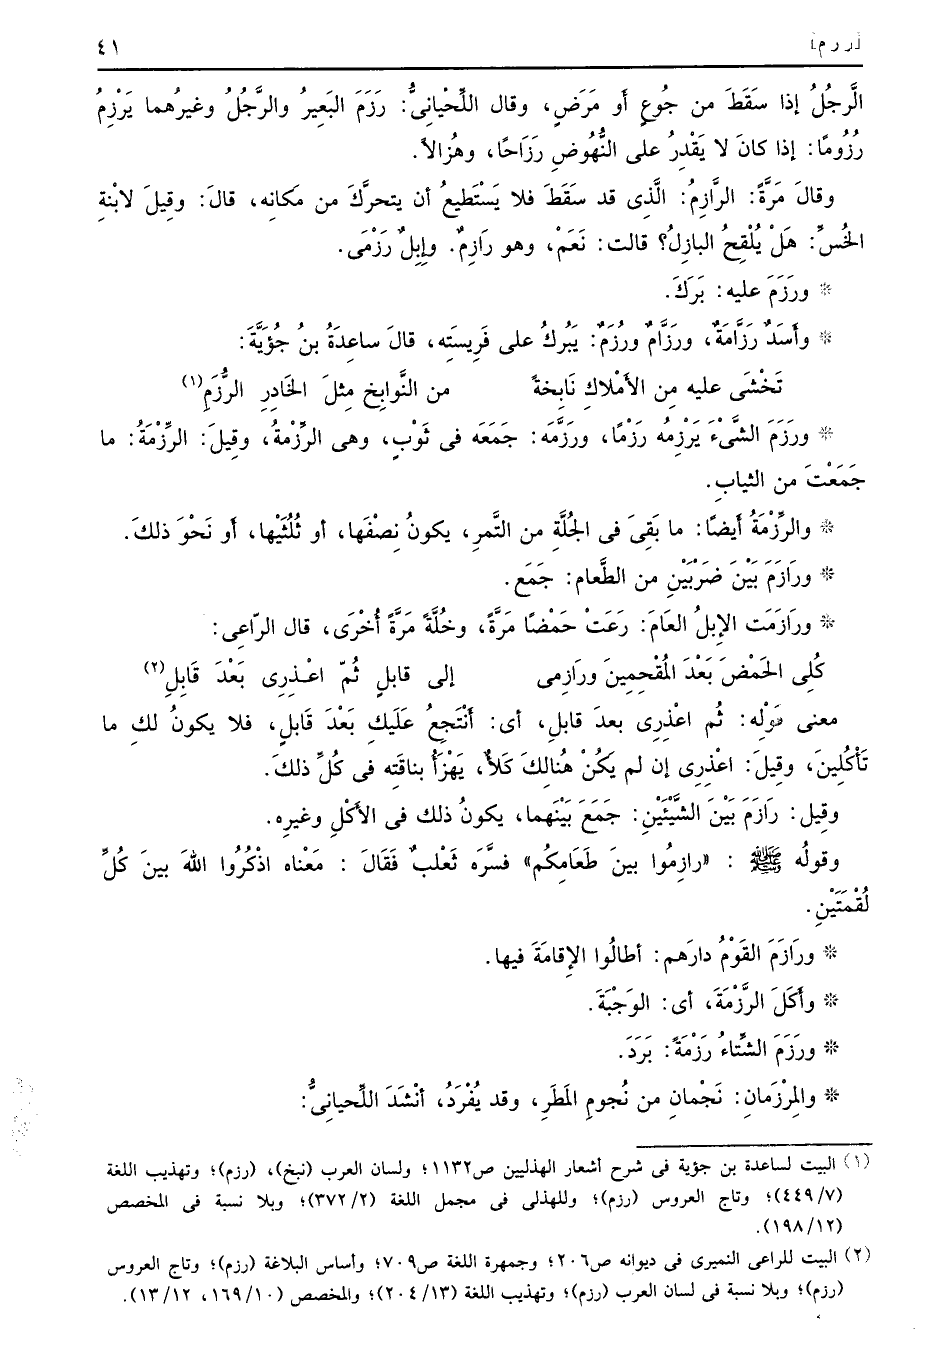 [ر ز م]
٤١
الرَّجلُ إذا سَقَطَ من جُوعٍ أو مَرَضٍ، وقال اللِّحْيانىُّ: رَزَمَ البَعيرُ والرَّجُلُ وغيرُهما يَرْزِمُ
رُزُومًا: إذا كانَ لا يَقْدِرُ على النُّهُوضِ رَزَاحًا، وهُزالاً.
وقالَ مَرَّةً: الرازِمُ: الَّذِى قد سَقَطَ فلا يَسْتَطيعُ أن يتحرَّكَ من مكانِه، قالَ: وقيلَ لابْنةِ
الخُسِّ: هَلْ يُلْقِحُ البازِلُ؟ قالت: نَعَمْ، وهو رَازِمٌ. وإبِلٌ رَزْمَى.
* ورَزَمَ عليه: بَرَكَ.
* وأَسَدٌ رَزَّامَةٌ، ورَزَّامٌ ورُزَمٌ: يَبْرُكُ على فَرِيستِه، قالَ ساعِدَةُ بنُ جُؤَيَّةَ:
تَخْشَى عليه مِن الأَمْلاكِ نَابِخةً من النَّوابِخِ مِثلَ الخَادِرِ الرُّزَمِ(١)
* ورَزَمَ الشَّىْءَ يَرْزِمُه رَزْمًا، ورَزَّمَه: جَمَعَه فى ثَوْبٍ، وهى الرِّزْمةُ، وقيلَ: الرِّزْمَةُ: ما
جَمَعْتَ من الثيابِ.
* والرِّزْمَةُ أيضًا: ما بَقِىَ فى الجُلَّةِ من التَّمرِ، يكونُ نِصْفَها، أو ثُلُثَيْها، أو نَحْوَ ذلكَ.
* ورَازَمَ بَيْنَ ضَرْبَيْنِ من الطَّعامِ: جَمَع.
* ورَازَمَت الإبلُ العَامَ: رَعَتْ حَمْضًا مَرَّةً، وخُلَّةً مَرَّةً أُخْرَى، قال الرّاعِى:
كُلِى الحَمْضَ بَعْدَ المُقْحِمِينَ ورَازِمِى إلى قابلٍ ثُمّ اعْذِرِى بَعْدَ قَابِلِ(٢)
معنى قَوْلِه: ثُم اعْذِرِى بعدَ قابلٍ، أى: أَنْتَجِعُ عَلَيكِ بَعْدَ قَابلٍ، فلا يكونُ لكِ ما
تَأْكُلِينَ، وقيلَ: اعْذِرِى إن لم يَكُنْ هُنالكَ كَلأٌ، يَهْزَأُ بناقَتِه فى كُلِّ ذلكَ.
وقيل: رَازَمَ بَيْنَ الشَّيْئَيْنِ: جَمَعَ بَيْنَهما، يكونُ ذلك فى الأكْلِ وغيرِه.
وقولُه ﷺ : «رازِمُوا بينَ طَعَامِكُم» فسَّرَه ثَعْلَبٌ فَقَالَ : مَعْناه اذْكُرُوا اللهَ بينَ كُلِّ
لُقْمَتَيْنِ.
* ورَازَمَ القَوْمُ دارَهم: أطالُوا الإقامَةَ فيها.
* وأكَلَ الرَّزْمَةَ، أى: الوَجْبَةَ.
* ورَزَمَ الشِّتاءُ رَزْمَةً: بَرَدَ.
* والمِرْزَمانِ: نَجْمانِ من نُجومِ المَطَرِ، وقد يُفْرَدُ، أنْشَدَ اللِّحيانىُّ:
(١) البيت لساعدة بن جؤية فى شرح أشعار الهذليين ص١١٣٢؛ ولسان العرب (نبخ)، (رزم)؛ وتهذيب اللغة
(٤٤٩/٧)؛ وتاج العروس (رزم)؛ وللهذلى فى مجمل اللغة (٣٧٢/٢)؛ وبلا نسبة فى المخصص
(١٩٨/١٢).
(٢) البيت للراعى النميرى فى ديوانه ص٢٠٦؛ وجمهرة اللغة ص٧٠٩؛ وأساس البلاغة (رزم)؛ وتاج العروس
(رزم)؛ وبلا نسبة فى لسان العرب (رزم)؛ وتهذيب اللغة (٢٠٤/١٣)؛ والمخصص (١٦٩/١٠، ١٣/١٢).